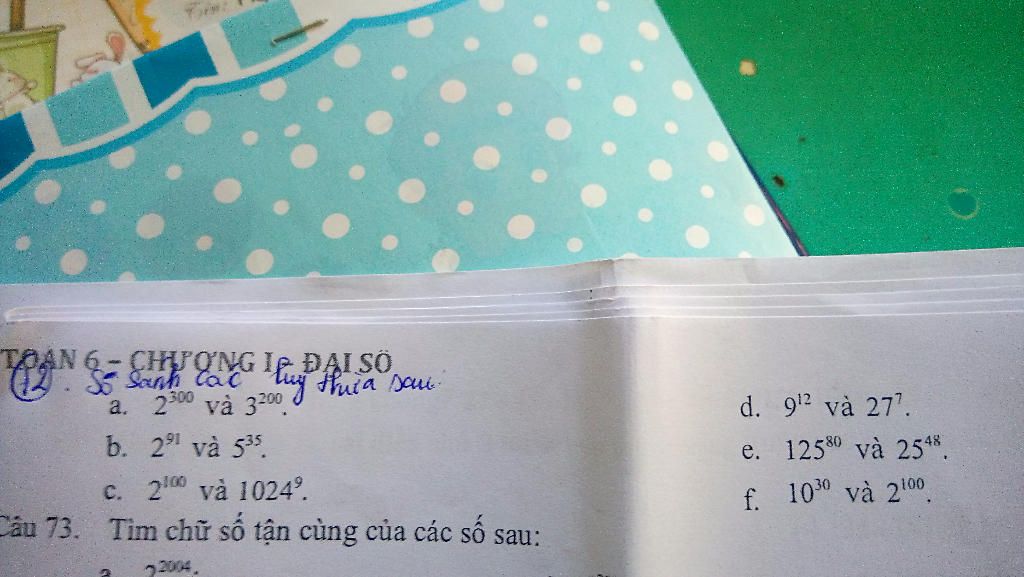 Tên:
TOÁN 6 – CHƯƠNG I - ĐẠI SỐ
72. Số sanh các luỹ thừa sau
a. 2³⁰⁰ và 3²⁰⁰.
b. 2⁹¹ và 5³⁵.
c. 2¹⁰⁰ và 1024⁹.
d. 9¹² và 27⁷.
e. 125⁸⁰ và 25⁴⁸.
f. 10³⁰ và 2¹⁰⁰.
Câu 73. Tìm chữ số tận cùng của các số sau:
a. 2²⁰⁰⁴;